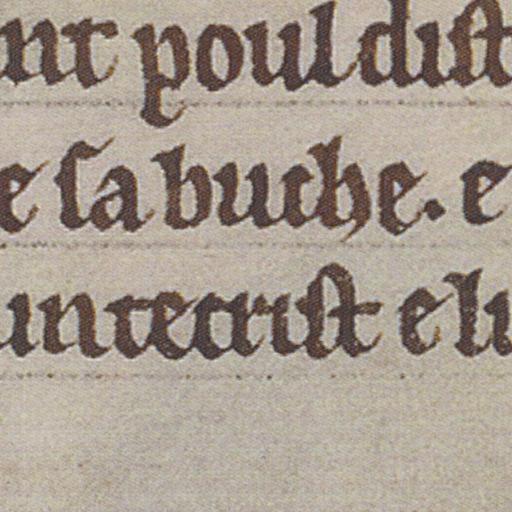 nt pouldist
e sa buche. e
untecrist e lu